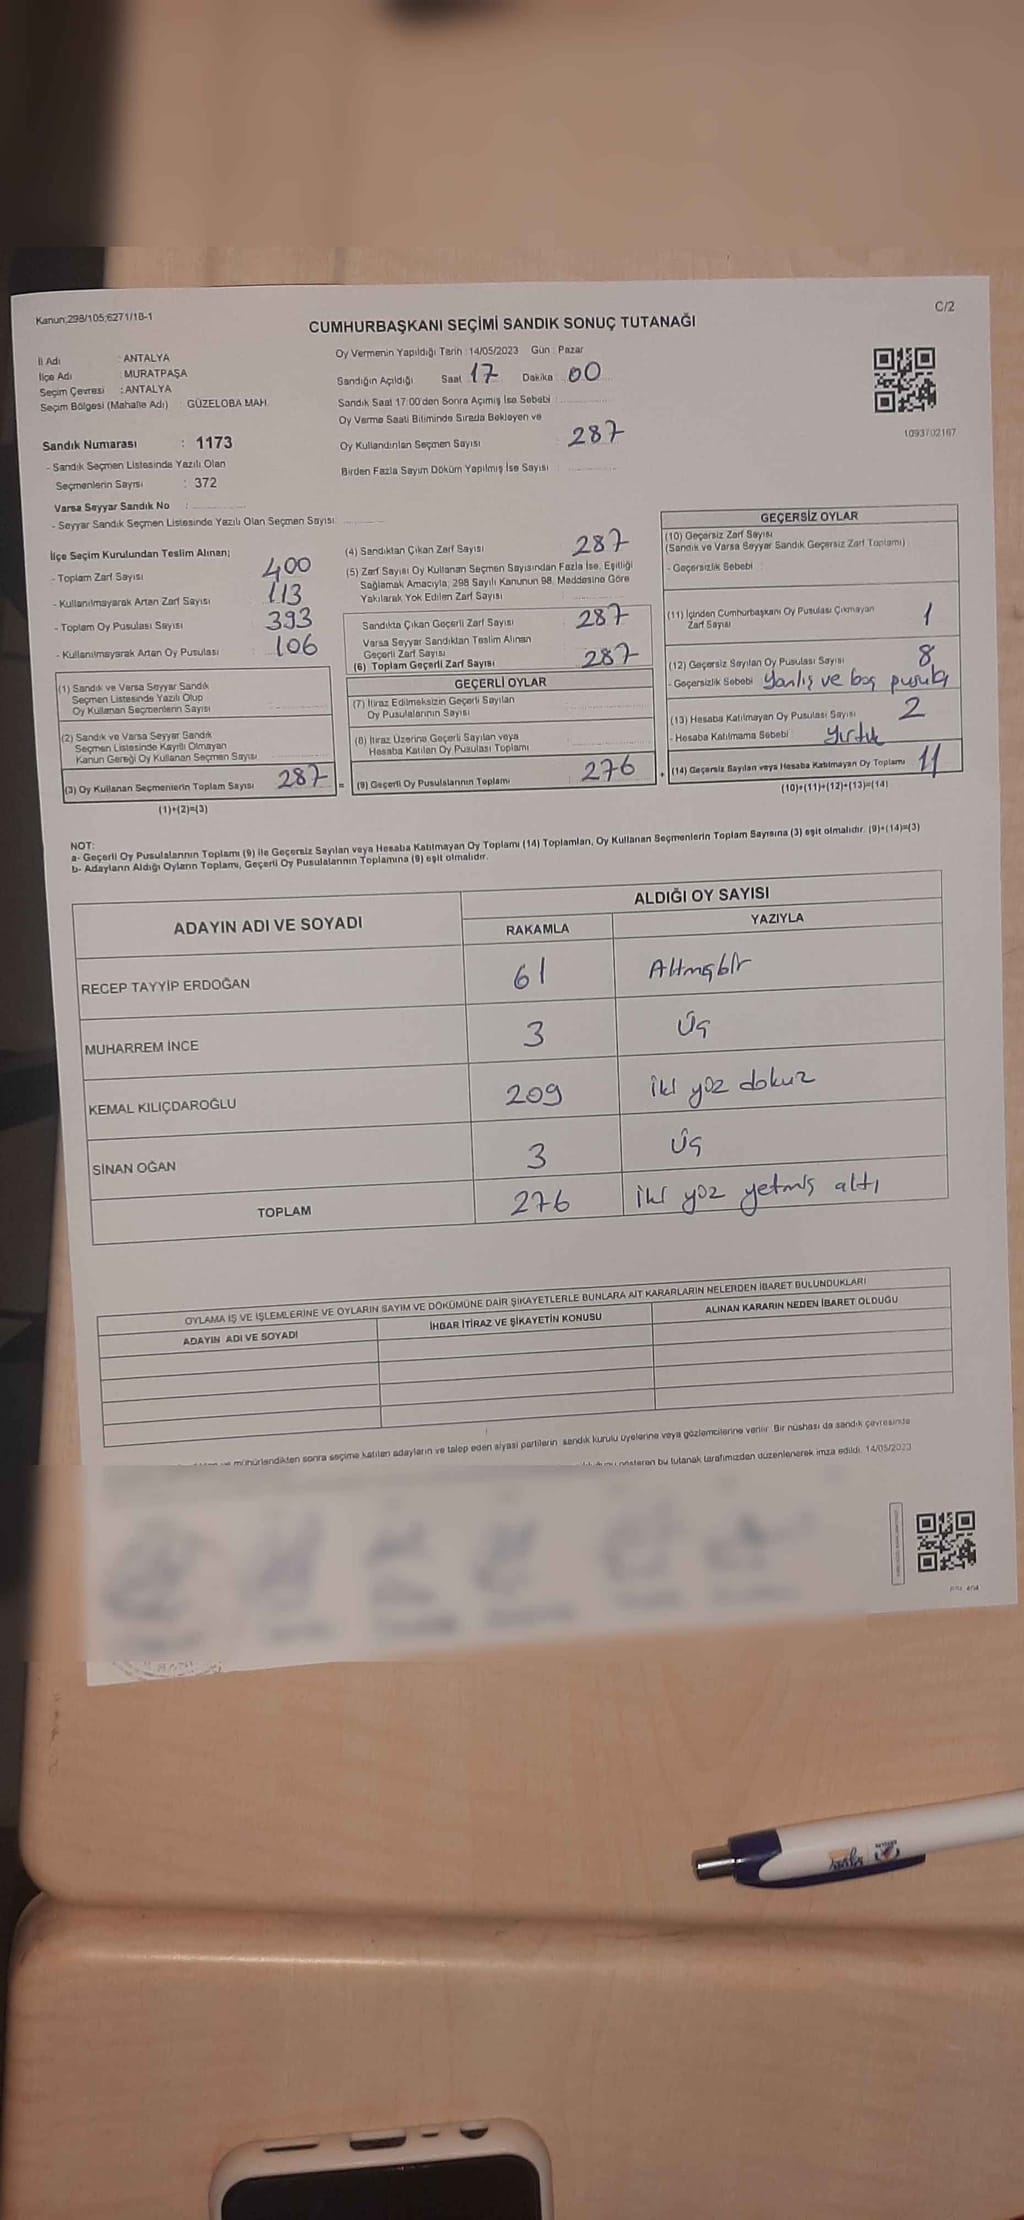 Kanun;298/105;6271/18-1
C/2
CUMHURBAŞKANI SEÇİMİ SANDIK SONUÇ TUTANAĞI
İl Adı : ANTALYA
İlçe Adı : MURATPAŞA
Seçim Çevresi : ANTALYA
Seçim Bölgesi (Mahalle Adı) : GÜZELOBA MAH.
Sandık Numarası : 1173
- Sandık Seçmen Listesinde Yazılı Olan
Seçmenlerin Sayısı : 372
Varsa Seyyar Sandık No :
- Seyyar Sandık Seçmen Listesinde Yazılı Olan Seçmen Sayısı:
Oy Vermenin Yapıldığı Tarih : 14/05/2023 Gün : Pazar
Sandığın Açıldığı Saat 17 Dakika : 00
Sandık Saat 17:00'den Sonra Açımış İse Sebebi :
Oy Verme Saati Bitiminde Sırada Bekleyen ve
Oy Kullandırılan Seçmen Sayısı : 287
Birden Fazla Sayım Döküm Yapılmış İse Sayısı :
1093702167
İlçe Seçim Kurulundan Teslim Alınan;
- Toplam Zarf Sayısı : 400
- Kullanılmayarak Artan Zarf Sayısı : 113
- Toplam Oy Pusulası Sayısı : 393
- Kullanılmayarak Artan Oy Pusulası : 106
(1) Sandık ve Varsa Seyyar Sandık
Seçmen Listesinde Yazılı Olup
Oy Kullanan Seçmenlerin Sayısı
(2) Sandık ve Varsa Seyyar Sandık
Seçmen Listesinde Kayıtlı Olmayan
Kanun Gereği Oy Kullanan Seçmen Sayısı
(3) Oy Kullanan Seçmenlerin Toplam Sayısı 287 =
(1)+(2)=(3)
(4) Sandıktan Çıkan Zarf Sayısı 287
(5) Zarf Sayısı Oy Kullanan Seçmen Sayısından Fazla İse, Eşitliği
Sağlamak Amacıyla, 298 Sayılı Kanunun 98. Maddesine Göre
Yakılarak Yok Edilen Zarf Sayısı :
Sandıkta Çıkan Geçerli Zarf Sayısı : 287
Varsa Seyyar Sandıktan Teslim Alınan
Geçerli Zarf Sayısı
(6) Toplam Geçerli Zarf Sayısı : 287
GEÇERLİ OYLAR
(7) İtiraz Edilmeksizin Geçerli Sayılan
Oy Pusulalarının Sayısı
(8) İtiraz Üzerine Geçerli Sayılan veya
Hesaba Katılan Oy Pusulası Toplamı
(9) Geçerli Oy Pusulalarının Toplamı : 276 +
GEÇERSİZ OYLAR
(10) Geçersiz Zarf Sayısı
(Sandık ve Varsa Seyyar Sandık Geçersiz Zarf Toplamı)
- Geçersizlik Sebebi :
(11) İçinden Cumhurbaşkanı Oy Pusulası Çıkmayan
Zarf Sayısı 1
(12) Geçersiz Sayılan Oy Pusulası Sayısı 8
- Geçersizlik Sebebi Yanlış ve boş pusula
(13) Hesaba Katılmayan Oy Pusulası Sayısı 2
- Hesaba Katılmama Sebebi : Yırtık
(14) Geçersiz Sayılan veya Hesaba Katılmayan Oy Toplamı 11
(10)+(11)+(12)+(13)=(14)
NOT:
a- Geçerli Oy Pusulalarının Toplamı (9) ile Geçersiz Sayılan veya Hesaba Katılmayan Oy Toplamı (14) Toplamları, Oy Kullanan Seçmenlerin Toplam Sayısına (3) eşit olmalıdır. (9)+(14)=(3)
b- Adayların Aldığı Oyların Toplamı, Geçerli Oy Pusulalarının Toplamına (9) eşit olmalıdır.
ADAYIN ADI VE SOYADI
ALDIĞI OY SAYISI
RAKAMLA YAZIYLA
RECEP TAYYİP ERDOĞAN 61 Altmışbir
MUHARREM İNCE 3 Üç
KEMAL KILIÇDAROĞLU 209 iki yüz dokuz
SİNAN OĞAN 3 Üç
TOPLAM 276 iki yüz yetmiş altı
OYLAMA İŞ VE İŞLEMLERİNE VE OYLARIN SAYIM VE DÖKÜMÜNE DAİR ŞİKAYETLERLE BUNLARA AİT KARARLARIN NELERDEN İBARET BULUNDUKLARI
ADAYIN ADI VE SOYADI İHBAR İTİRAZ VE ŞİKAYETİN KONUSU ALINAN KARARIN NEDEN İBARET OLDUĞU
mühürlendikten sonra seçime katılan adayların ve talep eden siyasi partilerin sandık kurulu üyelerine veya gözlemcilerine verilir. Bir nüshası da sandık çevresinde
gösteren bu tutanak tarafımızdan düzenlenerek imza edildi. 14/05/2023